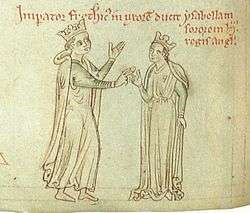 Imp̲ator frethic' in uxorē ducit ysabellam
sororem
regis angl'.